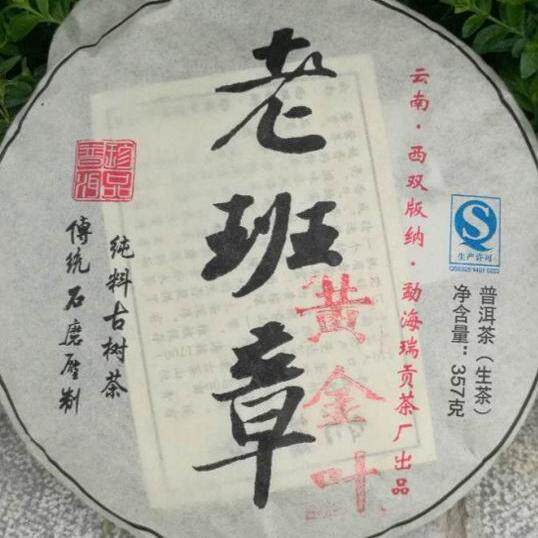 老班章
黄金叶
云南·西双版纳·勐海瑞贡茶厂出品
生产许可
普洱茶（生茶）
净含量：357克
珍品普洱
纯料古树茶
傳统石磨壓制